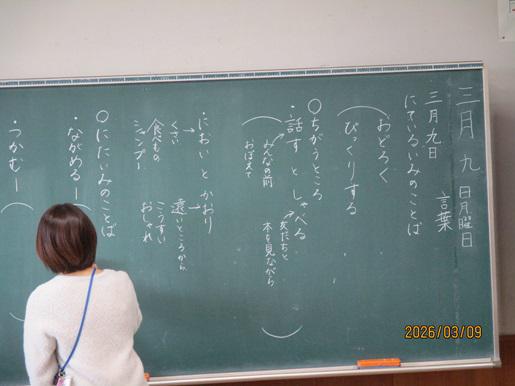 三月九日月曜日
三月九日 言葉
にているいみのことば
おどろく
びっくりする
○ちがうところ
・話す と しゃべる
みんなの前
おぼえて
友だちと
本を見ながら
・におい と かおり
くさい
食べもの
シャンプー
遠いところから
こうすい
おしゃれ
○にたいみのことば
・ながめるー
・つかむー
2026/03/09